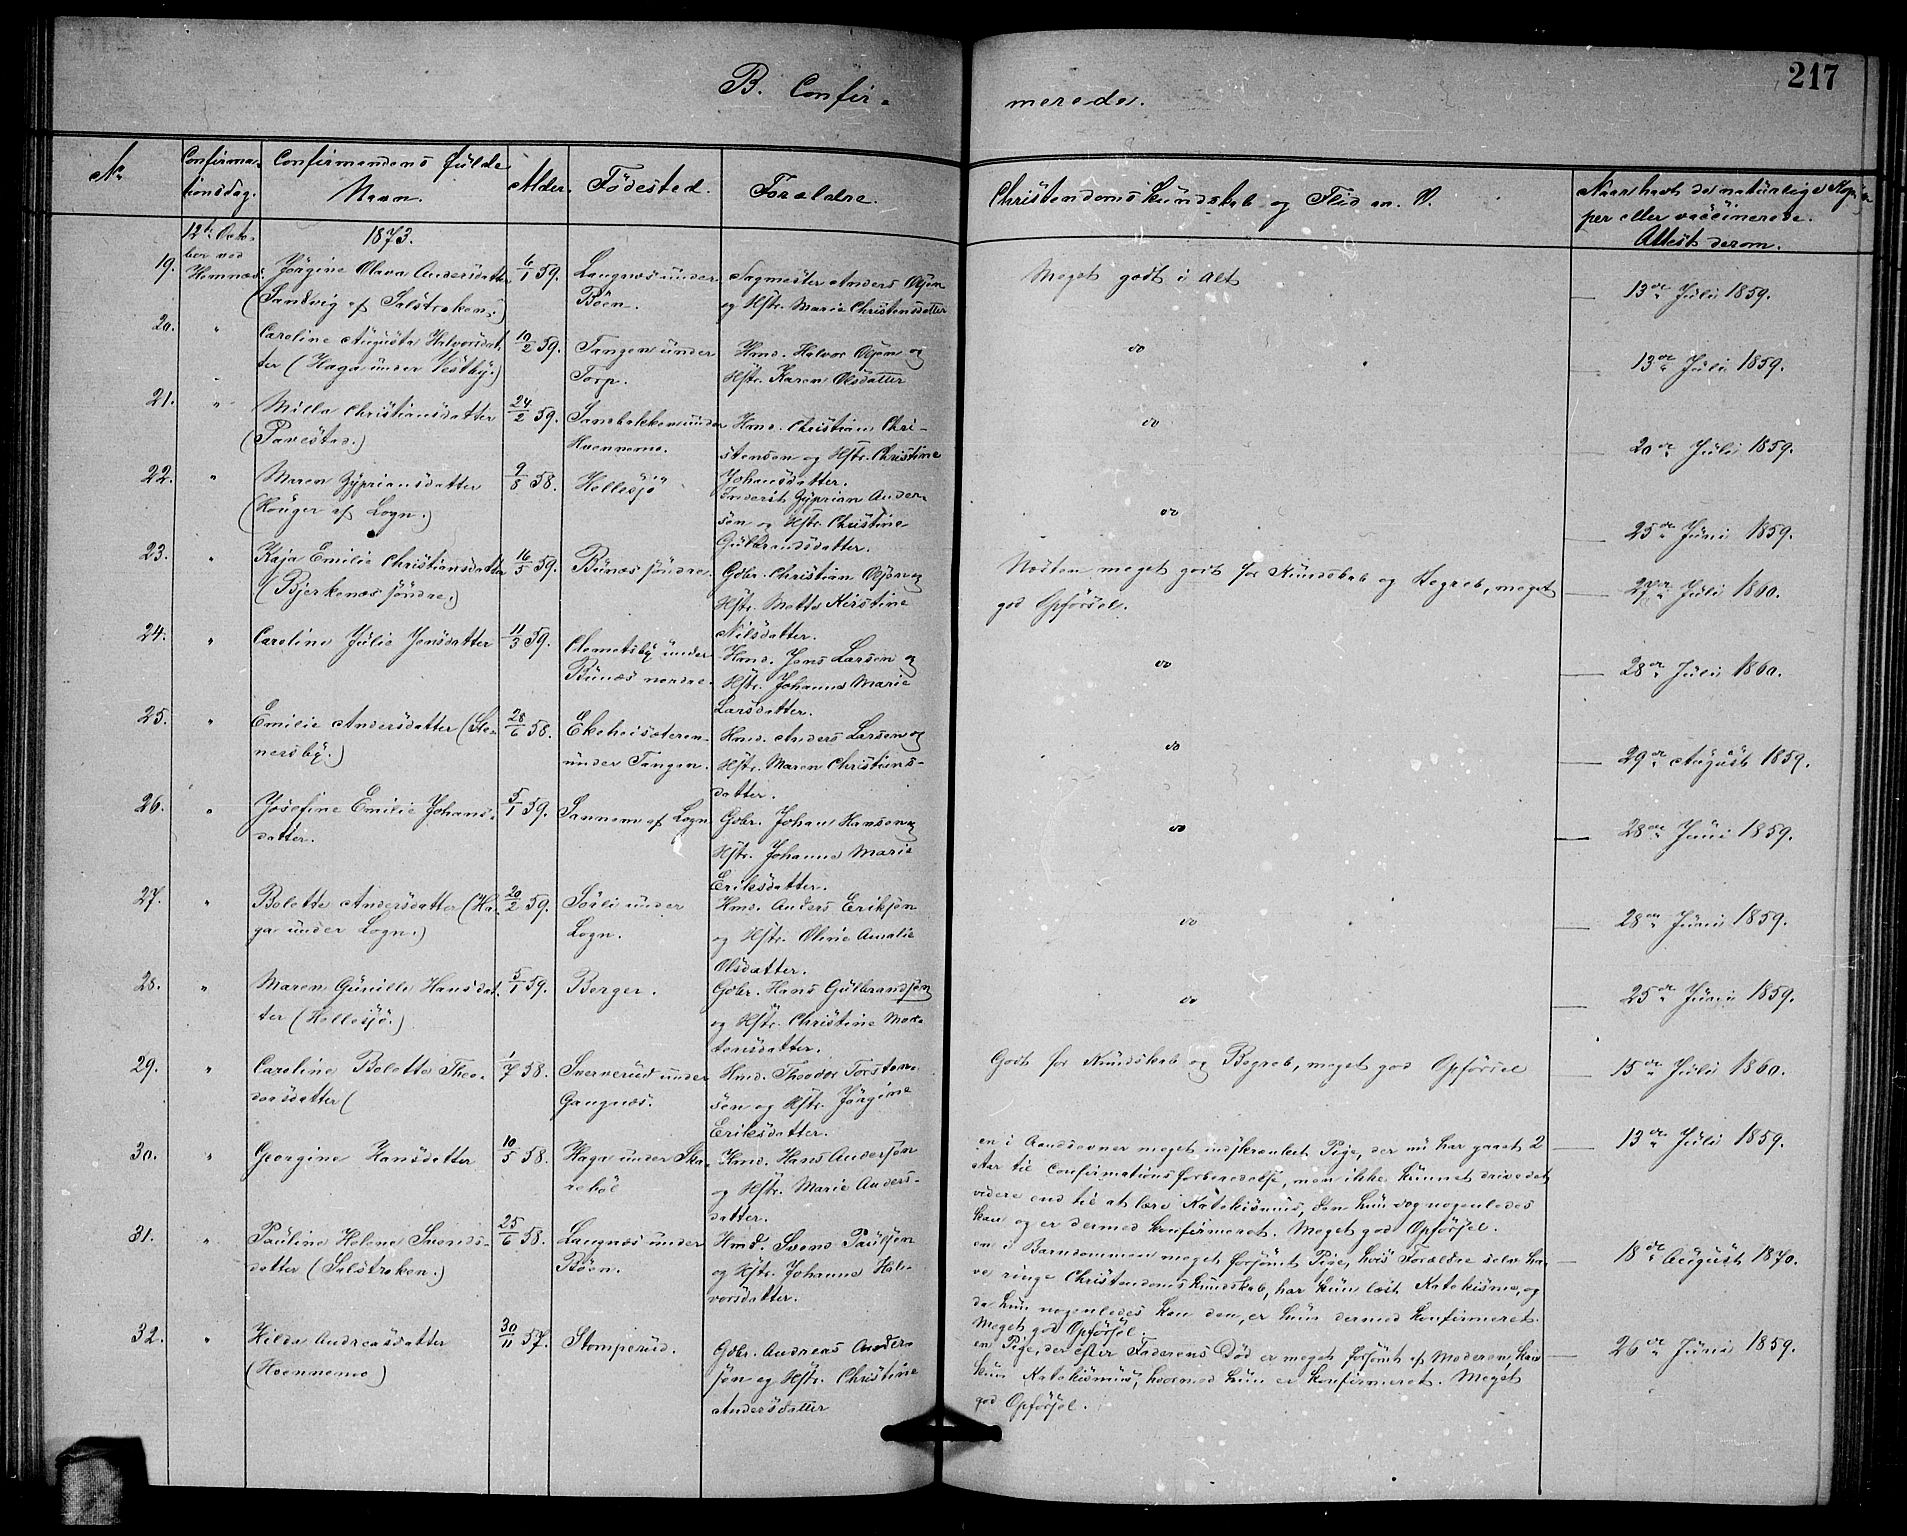 217
B. Confirmerede.
No
Confirmationsdag.
Confirmandens fulde Navn.
Alder.
Fødested.
Forældre.
Christendoms Kundskab og Flid m. V.
Naar havt de naturlige Kopper eller vaccinerede. Attest derom.
12te October ved Hemnæs.
1873.
19.
Jørgine Olava Andersdatter
(Sandvig af Salstroken.)
6/1 59.
Langnæs under
Böen.
Sagmester Anders Olsen
og Hstr. Marie Christensdatter
Meget godt i Alt
13de Juli 1859.
20. "
Caroline Augusta Halvorsdat-
ter (Haga under Vestby.)
10/2 59.
Tangen under
Torp.
Hmd. Halvor Olsen og
Hstr. Karen Olsdatter
do
13de Juli 1859.
21. "
Milla Christiansdatter
(Tavestad.)
24/2 59.
Sandbakken under
Hoennemo.
Hmd. Christian Chri-
stensen og Hstr. Christine
Johansdatter.
do
20de Juli 1859.
22. "
Maren Zypriansdatter
(Köuger af Logn.)
9/8 58.
Hellesjö
Inderst Zyprian Ander-
sen og Hstr. Christine
Gulbrandsdatter.
do
25de Juni 1859.
23. "
Kaja Emilie Christiansdatter
(Bjerkenæs söndre.)
16/5 59.
Bunæs söndre.
Gdbr. Christian Olsen og
Hstr. Mette Kirstine
Nilsdatter.
Næsten meget godt for Kundskab og Begreb, meget
god Opførsel.
27de Juli 1860.
24. "
Caroline Julie Jensdatter
11/3 59.
Clemetsby under
Bunæs nordre.
Hmd. Jens Larsen og
Hstr. Johanne Marie
Larsdatter.
do
28de Juli 1860.
25. "
Emilie Andersdatter (Ste-
nersby.)
28/6 58.
Ekeheisæteren
under Tangen.
Hmd. Anders Larsen og
Hstr. Maren Christians-
datter.
do
29de August 1859.
26. "
Josefine Emilie Johans-
datter.
5/1 59.
Sannem af Logn
Gdbr. Johan Hansen og
Hstr. Johanne Marie
Eriksdatter.
do
28de Juni 1859.
27. "
Bolette Andersdatter (Ha-
ga under Logn.)
20/2 59.
Sörli under
Logn.
Hmd. Anders Eriksen
og Hstr. Oline Amalie
Olsdatter.
do
28de Juni 1859.
28. "
Maren Gunille Hansdat-
ter (Hellesjö.)
5/1 59.
Berger.
Gdbr. Hans Gulbrandsen
og Hstr. Christine Mor-
tensdatter.
do
25de Juni 1859.
29. "
Caroline Bolette Theo-
dorsdatter (
1/7 58.
Sververud under
Gangnæs.
Hmd. Theodor Torsten-
sen og Hstr. Jörgine
Eriksdatter.
Godt for Kundskab og Begreb, meget god Opførsel
15de Juli 1860.
30. "
Georgine Hansdatter
10/5 58.
Haga under Ska-
rehol
Hmd. Hans Andersen
og Hstr. Marie Anders-
datter.
en i Aandsevner meget indskrænket Pige, der nu har gaaet 2
Aar til Confirmationsforberedelse, men ikke kunnet drive det
videre end til at lære Katekismus, den hun dog nogenledes
kan og er dermed konfirmeret. Meget god Opførsel.
13de Juli 1859.
31. "
Pauline Helene Svends-
datter (Salstroken.)
25/6 58.
Langnæs under
Böen.
Hmd. Svend Paulsen
og Hstr. Johanne Hal-
vorsdatter.
en i Barndommen meget forsømt Pige, hvis Forældre selv ha-
ve ringe Christendomskundskab, har kun læst Katekisme, og
da hun nogenledes kan den, er hun dermed konfirmeret.
Meget god Opførsel.
18de August 1870.
32. "
Hilda Andreasdatter
(Hoennemo)
30/11 57.
Stomperud.
Gdbr. Andreas Ander-
sen og Hstr. Christine
Andersdatter
en Pige, der efter Faderens Død er meget forsømt af Moderen, kan
kun Katekismus, hvormed hun er konfirmeret. Meget
god Opførsel.
26de Juni 1859.